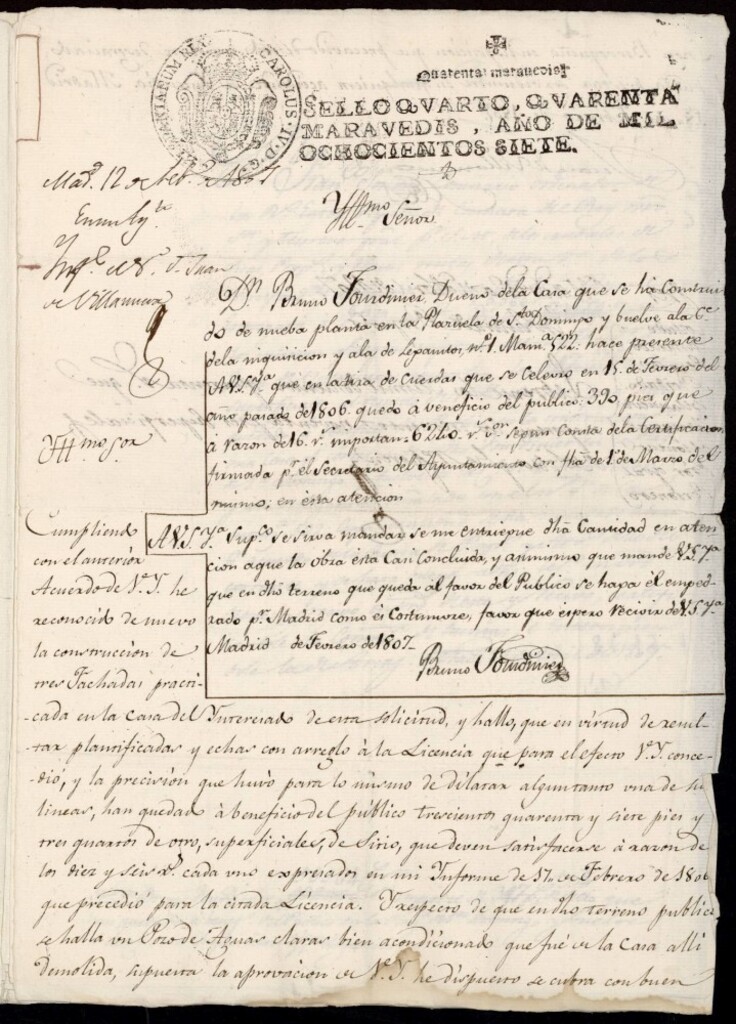 CAROLUS IV D G HISPANIARUM REX
Quarenta maravedis
SELLO QVARTO, QVARENTA
MARAVEDIS, AÑO DE MIL
OCHOCIENTOS SIETE.
Mad.d 12 de feb.o de 1807
Yllmo Señor
Ynf.e el S.r D. Juan
de Villanueva
D.n Bruno Fourdinier Dueño dela Casa que se ha Construi
do de nueba planta en la Plazuela de S.to Domingo y buelve ala C.e
dela inquisicion y ala de Leganitos, n.o 1. Man.a 522. hace presente
A V.S.Y.a que en la tira de Cuerdas que se Celevro en 15. de Fevrero del
año pasado de 1806. quedo á veneficio del publico. 390, pies que
á razon de 16. r.s importan 6240. r.s v.on segun Consta dela Certificacion
firmada p.r el Secretario del Ayuntamiento con fha de 1.o de Marzo del
mismo; en esta atencion
Yllmo Sor
A V.S.Y.a Sup.co se sirva mandar se me entriegue dha Cantidad en aten
cion aque la obra esta Casi Concluida, y asimismo que mande V.S.Y.a
que en dho terreno que queda al favor del Publico se haga el emped
rado p.r Madrid como es Costumvre, favor que espero recivir de V.S.Y.a
Madrid de Fevrero de 1807
Bruno Fourdinier
Cumpliendo
con el anterior
Acuerdo de V.Y. he
reconocido de nuevo
la construccion de
tres Fachadas practi-
cada en la Casa del Interesado de esta solicitud, y hallo, que en virtud de resul-
tar plantificadas y echas con arreglo á la Licencia que para el efecto V.Y. conce-
dió, y la precision que huvo para lo mismo de dilatar algun tanto una de sus
lineas, han quedado á beneficio del público trescientos quarenta y siete pies y
tres quartos de otro, superficiales, de Sitio, que deven satisfacerse á razon de
los diez y seis r.s cada uno expresados en mi Informe de 17 de Febrero de 1806
que precedió para la citada Licencia. Y respecto de que en dho terreno publico
se halla un Pozo de Aguas claras bien acondicionado que fué de la Casa alli
demolida, supuesta la aprovacion de V.Y. he dispuesto se cubra con buen